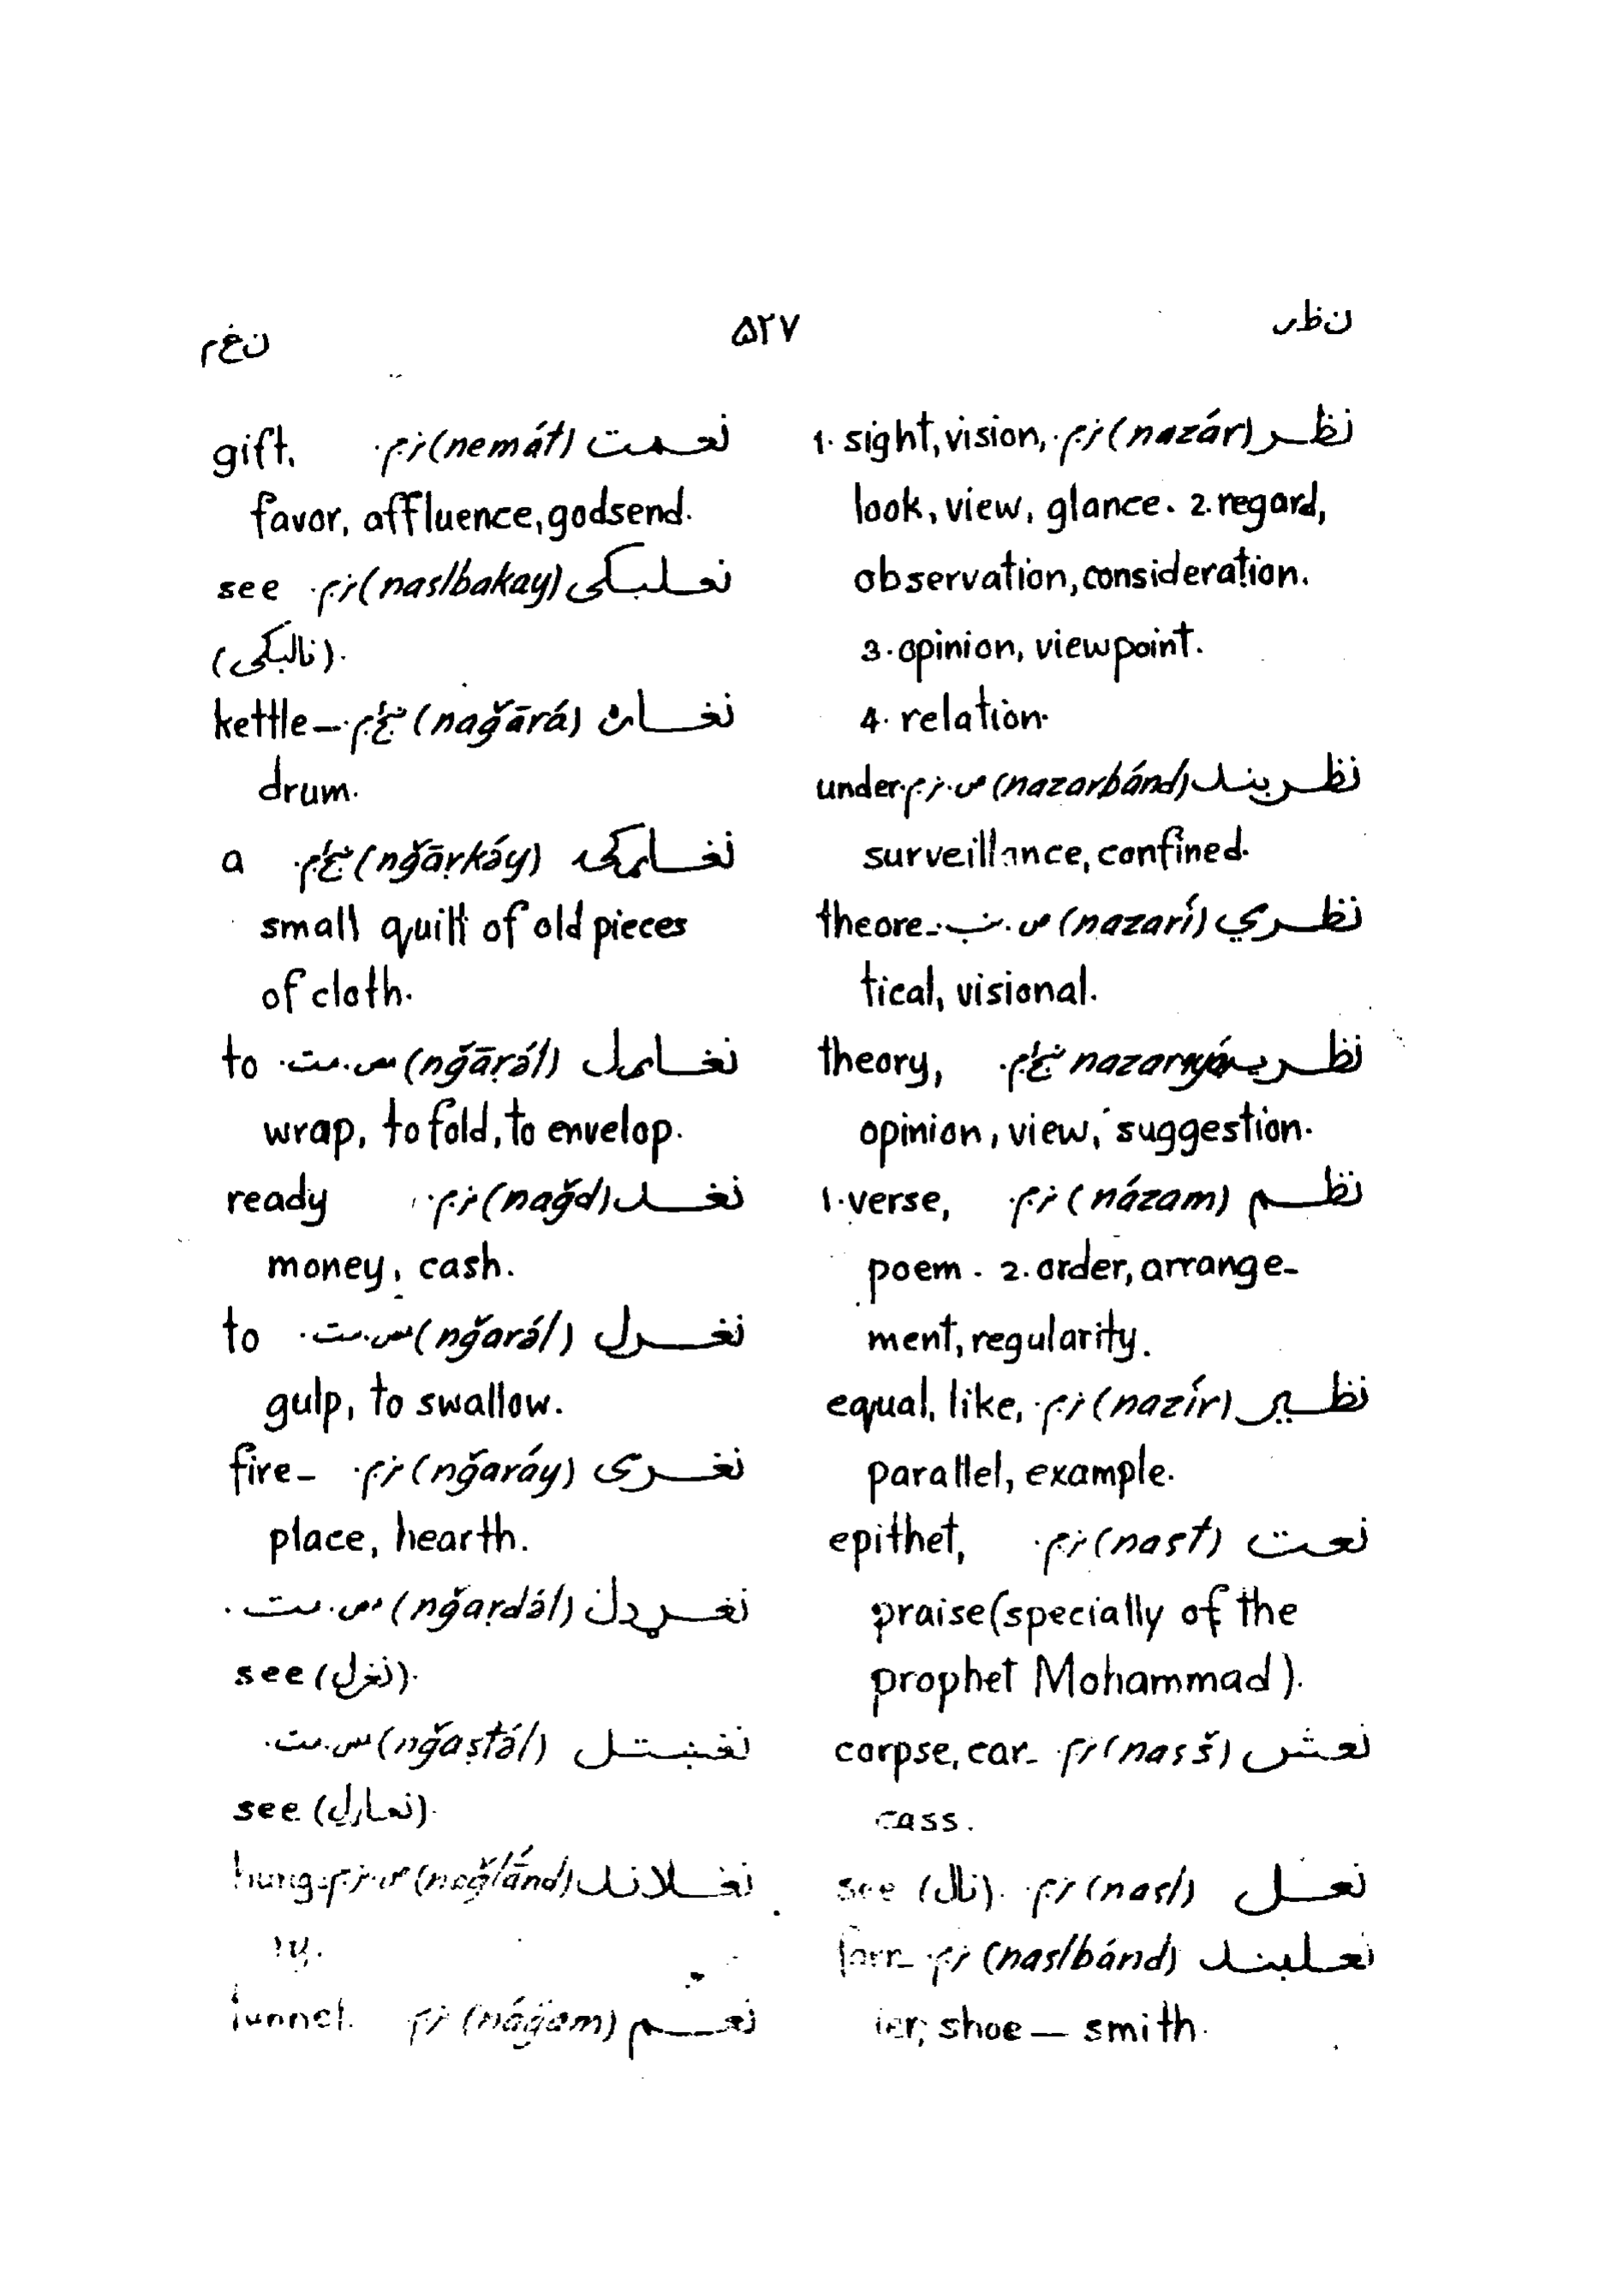 نظر
۵۲۷
نغم
نظر (nazár) نر.م. 1. sight, vision,
look, view, glance. 2. regard,
observation, consideration.
3. opinion, viewpoint.
4. relation.
نظربند (nazarbánd) ص.نر.م. under
surveillance, confined.
نظري (nazarí) ص. theore-
tical, visional.
نظریه nazaryá ښځ.م. theory,
opinion, view, suggestion.
نظم (názam) نر.م. 1. verse,
poem. 2. order, arrange-
ment, regularity.
نظیر (nazír) نر.م. equal, like,
parallel, example.
نعت (nast) نر.م. epithet,
praise (specially of the
prophet Mohammad).
نعش (nasš) نر.م. corpse, car-
cass.
نعل (nasl) نر.م. see (نال).
نعلبند (naslbánd) نر.م. farr-
ier; shoe — smith.
نعمت (nemát) نر.م. gift,
favor, affluence, godsend.
نعلبکی (naslbakay) نر.م. see
(نالبکی).
نغاره (nağārá) ښځ.م. kettle-
drum.
نغاړکۍ (nğāṛkáy) ښځ.م. a
small quilt of old pieces
of cloth.
نغاړل (nğāṛə́l) س.مت. to
wrap, to fold, to envelop.
نغد (nağd) نر.م. ready
money, cash.
نغرل (nğarə́l) س.مت. to
gulp, to swallow.
نغری (nğaráy) نر.م. fire-
place, hearth.
نغړدل (nğaṛdə́l) س.مت.
see (نغرل).
نغښتل (nğaṣtə́l) س.مت.
see (نغاړل).
نغلاند (nağlā́nd) ص.نر.م. hung-
ry.
نغم (náğam) نر.م. tunnel.